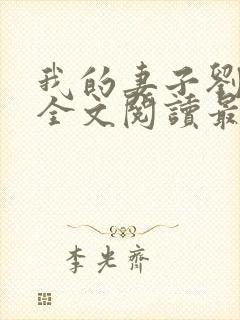 我的妻子劉
全文閱讀最
李光齊